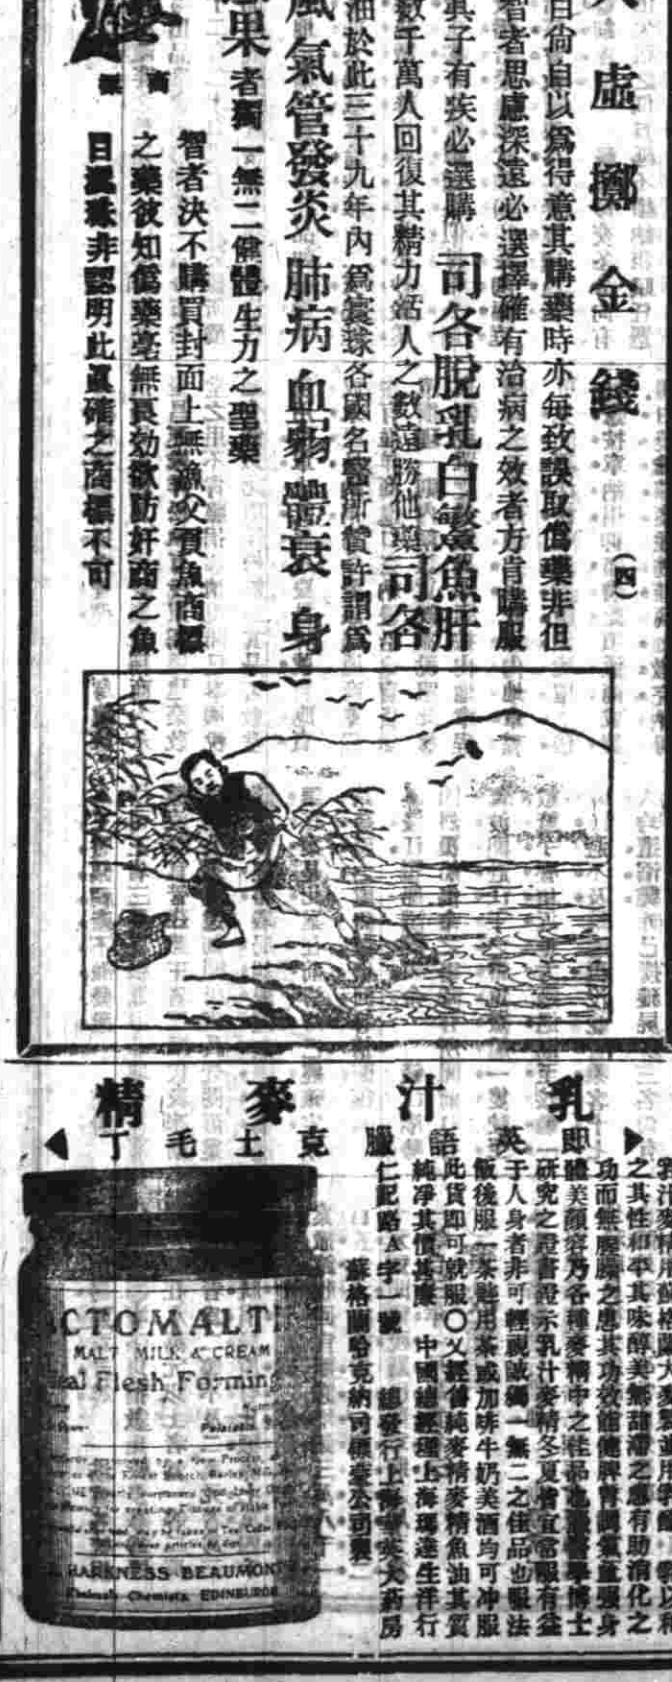 虛擲金錢(四)
日尙自以爲得意其購藥時亦每致誤取僞藥非但
智者思慮深遠必選擇確有治病之效者方肯購服
其子有疾必選購 司各脫乳白鰵魚肝
數千萬人回復其精力活人之數遠勝他藥 司各
油於此三十九年內爲寰球各國名醫所贊許謂爲
風 氣管發炎 肺病 血弱 體衰 身
果者獨一無二健體生力之聖藥
智者決不購買封面上無漁父負魚商標
之藥彼知僞藥毫無眞効欲防奸商之魚
目混珠非認明此眞確之商標不可
商標
乳汁麥精
即英語臘克土毛丁
之其性和平其味醇美無甜滯之患有助消化之
功而無腥臊之患其功效能健脾胃調氣血强身
體美顏容乃各種麥精中之佳品也醫學博士
研究之證書證示乳汁麥精冬夏皆宜常服有益
于人身者非可輕視誠獨一無二之佳品也服法
飯後服一茶匙用茶或加啡牛奶美酒均可冲服
此貨即可就服〇又經售純麥精麥精魚油其質
純凈其價甚廉 中國總經理上海瑪達生洋行
仁記路A字一號 總發行上海華英大藥房
蘇格蘭哈克納司
CTOMALTI
MALT MILK & CREAM
eal Flesh Forming
HARKNESS BEAUMONT
Wholesale Chemists EDINBURGH